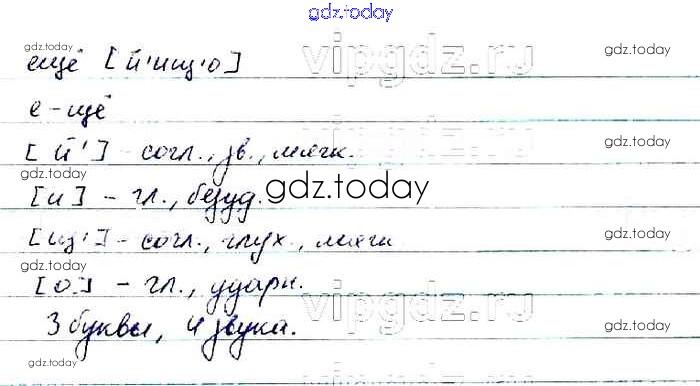 gdz.today
gdz.today vipgdz.ru gdz.today
ещё [й'ищ'о]
е-щё
vipgdz.ru
[й'] - согл., зв., мягк.
gdz.today gdz.today
[и] - гл., безуд.
gdz.today
[щ'] - согл., глух., мягк
gdz.today gdz.today
[о] - гл., ударн.
vipgdz.ru
3 буквы, 4 звука.
gdz.today
gdz.today
vipgdz.ru